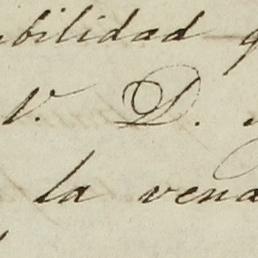 bilidad
V. D.
la vena